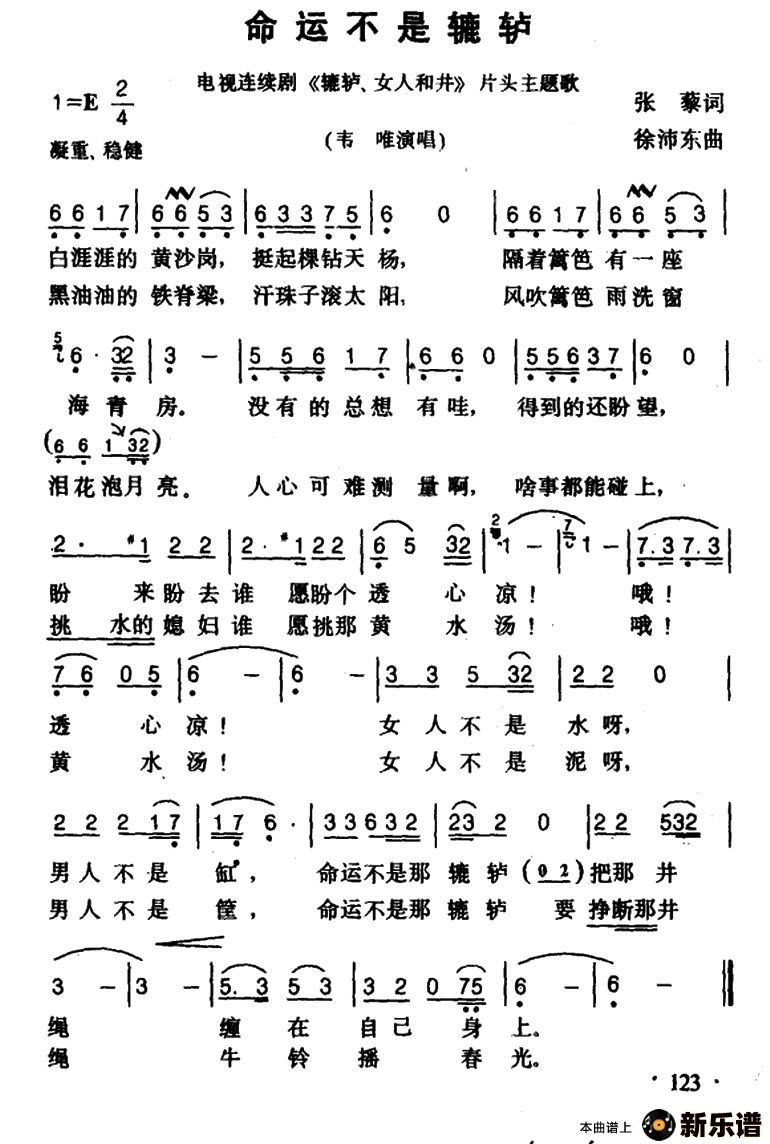 命运不是辘轳
电视连续剧《辘轳、女人和井》片头主题歌
1=E 2/4
张 藜词
凝重、稳健
(韦 唯演唱)
徐沛东曲
6 6 1 7 | 6 6 5 3 | 6 3 3 7 5 | 6 0 | 6 6 1 7 | 6 6 5 3 |
白涯涯的 黄沙岗， 挺起棵钻天 杨， 隔着篱笆 有一座
黑油油的 铁脊梁， 汗珠子滚太 阳， 风吹篱笆 雨洗窗
5 6 · 32 | 3 – | 5 5 6 1 7 | 6 6 0 | 5 5 6 3 7 | 6 0 |
海 青 房。 没有的总想 有哇， 得到的还盼 望，
(6 6 1 32)
泪花泡月 亮。 人心可难测 量啊， 啥事都能碰 上，
2 · #1 2 2 | 2 · #1 2 2 | 6 5 32 | 2 1 – | 7 1 – | 7. 3 7. 3 |
盼 来盼去谁 愿盼个 透 心 凉！ 哦！
挑 水的媳妇谁 愿挑那 黄 水 汤！ 哦！
7 6 0 5 | 6 – | 6 – | 3 3 5 32 | 2 2 0 |
透 心 凉！ 女 人 不 是 水 呀，
黄 水 汤！ 女 人 不 是 泥 呀，
2 2 2 17 | 17 6 · | 3 3 6 3 2 | 23 2 0 | 2 2 532 |
男 人 不 是 缸， 命运不是那 辘 轳 (0 2) 把那 井
男 人 不 是 筐， 命运不是那 辘 轳 要 挣断那井
3 – | 3 – | 5. 3 5 3 | 3 2 0 75 | 6 – | 6 – ‖
绳 缠 在 自 己 身 上。
绳 牛 铃 摇 春 光。
· 123 ·
本曲谱上 新乐谱